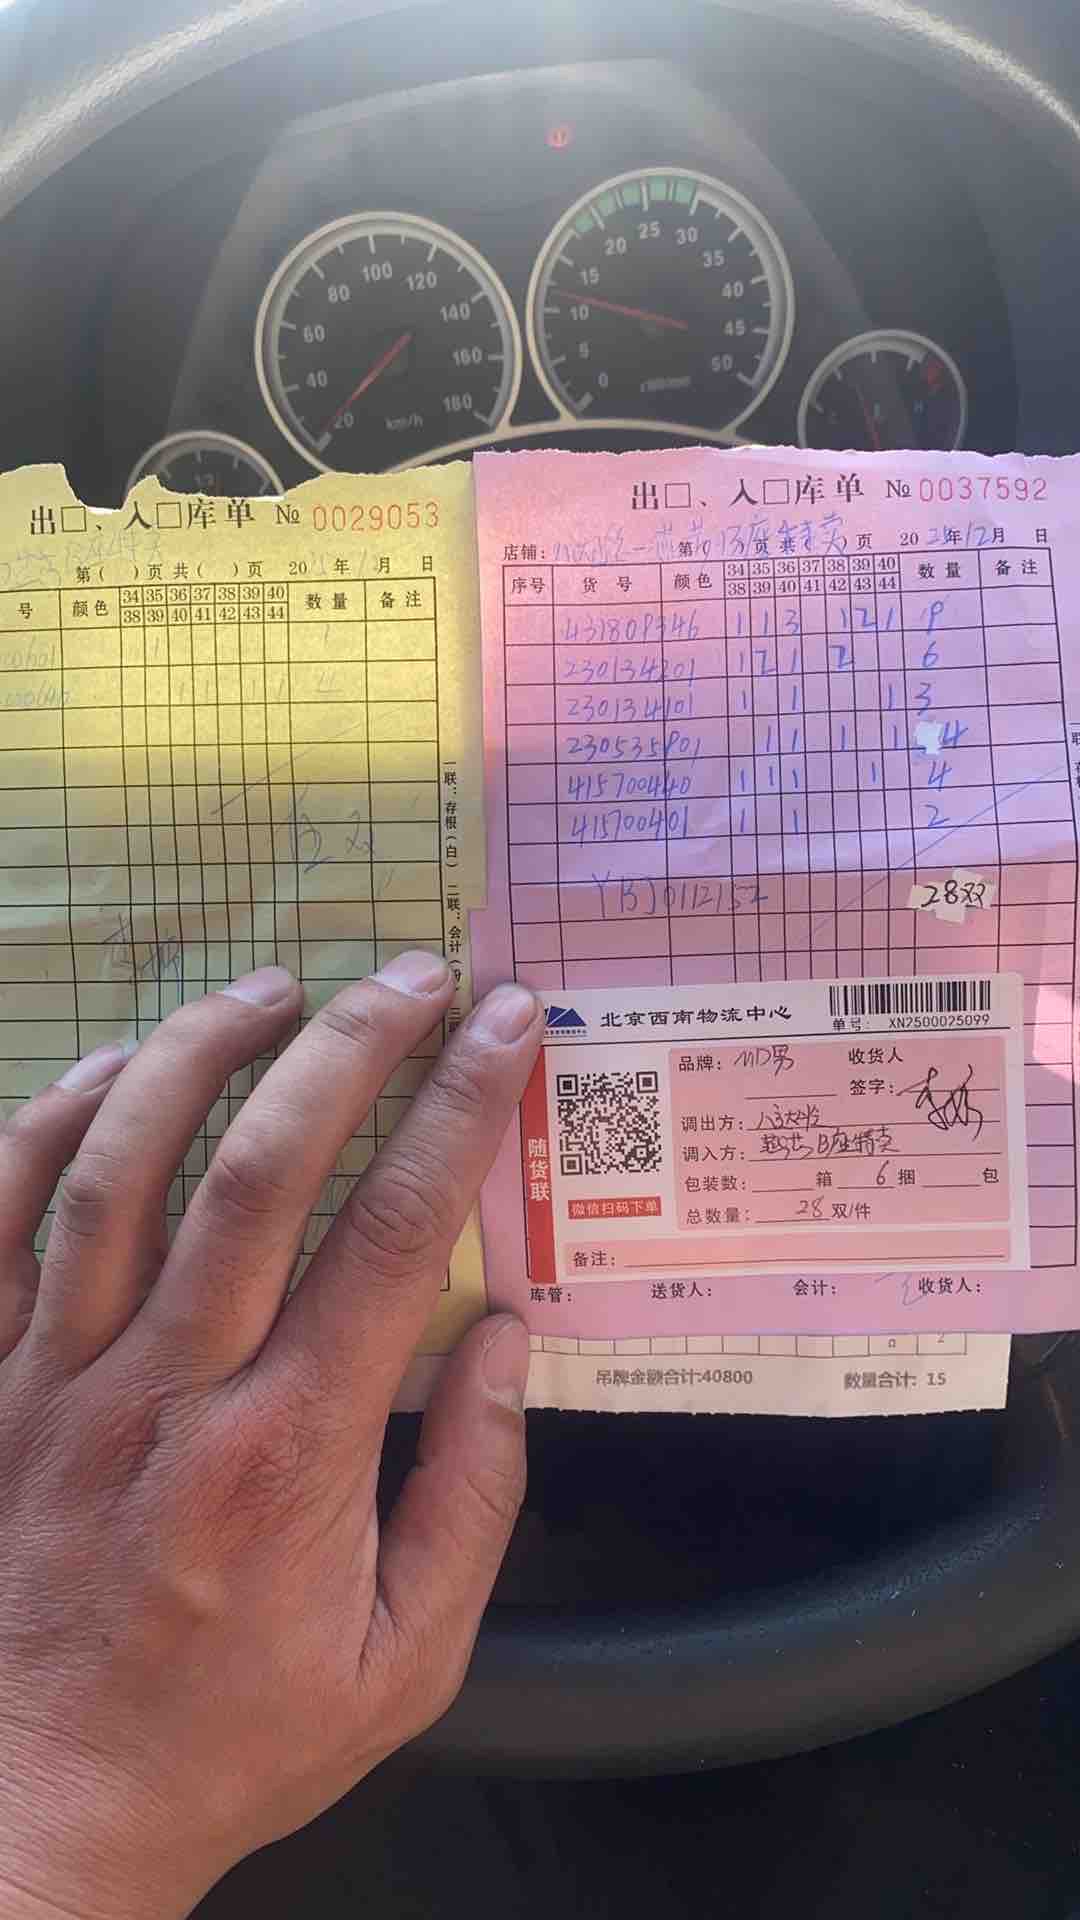 80 100 120
60 140
40 160
20 km/h 180
15 20 25 30 35
10 40
5 45
0 50
出□、入□库单 № 0029053
第( )页 共( )页 20 年12月 日
号 颜色 34 35 36 37 38 39 40 数量 备注
38 39 40 41 42 43 44
1 1
1 1 1 1 4
5双
一联：存根(白) 二联：会计(粉) 三联
出□、入□库单 № 0037592
店铺： 第( )页 共( )页 2025年12月 日
序号 货号 颜色 34 35 36 37 38 39 40 数量 备注
38 39 40 41 42 43 44
431809346 1 1 3 1 2 1 9
230134201 1 2 1 2 6
230134101 1 1 1 3
230535901 1 1 1 1 4
415700440 1 1 1 1 4
415700401 1 1 2
YBJ0112152 28双
北京西南物流中心 单号: XN2500025099
随货联
微信扫码下单
品牌：MD男 收货人
签字：
调出方：
调入方： B座特卖
包装数： 箱 6 捆 包
总数量： 28 双/件
备注：
库管： 送货人： 会计： 收货人：
2
吊牌金额合计:40800 数量合计: 15